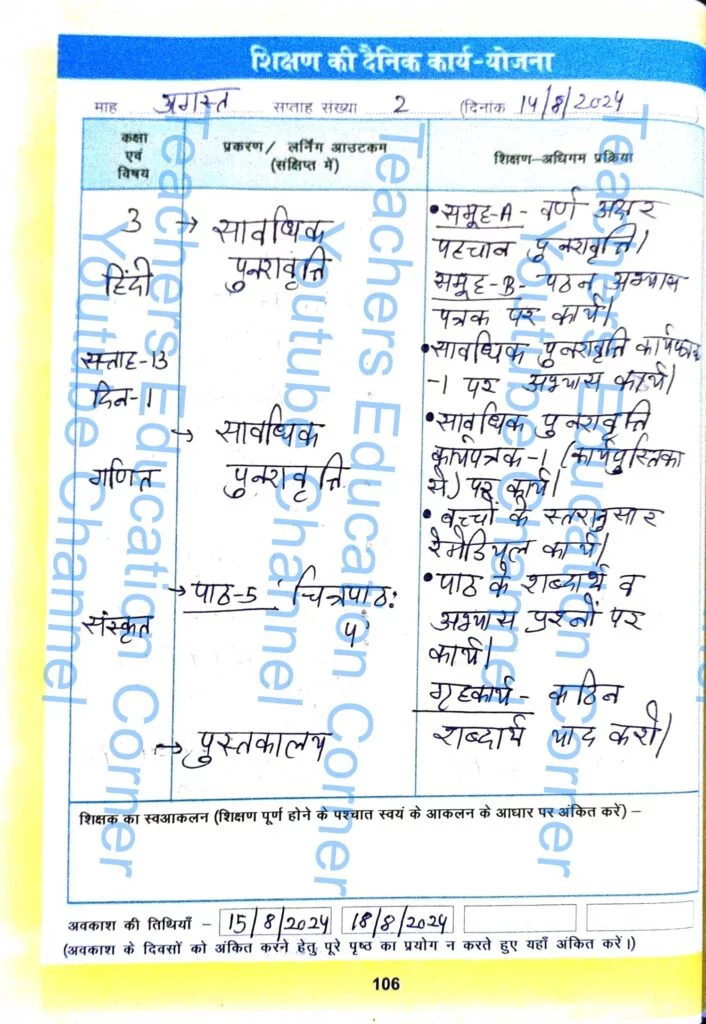 शिक्षण की दैनिक कार्य-योजना
माह अगस्त सप्ताह संख्या 2 (दिनांक 14/8/2024
कक्षा
एवं
विषय
प्रकरण/ लर्निंग आउटकम
(संक्षिप्त में)
शिक्षण-अधिगम प्रक्रिया
3
हिंदी
सप्ताह-13
दिन-1
गणित
संस्कृत
→ सावधिक
पुनरावृत्ति
→ सावधिक
पुनरावृत्ति
→ पाठ-5 'चित्रपाठ:
→ पुस्तकालय
• समूह-A - वर्ण अक्षर
पहचान पुनरावृत्ति।
समूह-B- पठन अभ्यास
पत्रक पर कार्य।
• सावधिक पुनरावृत्ति
-1 पर अभ्यास कार्य।
• सावधिक पुनरावृत्ति
कार्यपत्रक-1 (कार्यपुस्तिका
से) पर कार्य।
• बच्चों के स्तरानुसार
रेमेडियल कार्य।
• पाठ के शब्दार्थ व
अभ्यास प्रश्नों पर
कार्य।
गृहकार्य - कठिन
शब्दार्थ याद करो।
शिक्षक का स्वआकलन (शिक्षण पूर्ण होने के पश्चात स्वयं के आकलन के आधार पर अंकित करें) –
अवकाश की तिथियाँ – 15/8/2024 18/8/2024
(अवकाश के दिवसों को अंकित करने हेतु पूरे पृष्ठ का प्रयोग न करते हुए यहाँ अंकित करें।)
106
Teachers Education Corner
Youtube Channel
Teachers Education Corner
Youtube Channel
Teachers Education Corner
Youtube Channel